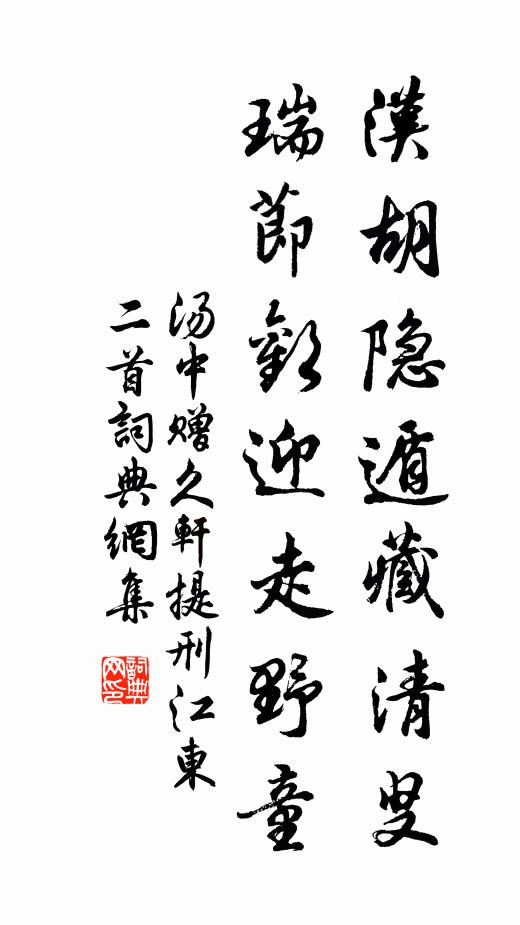 漢胡隐遁藏清叟
瑞節歡迎走野童
汤中赠久軒提刑江東
二首詞典網集
詞典网印